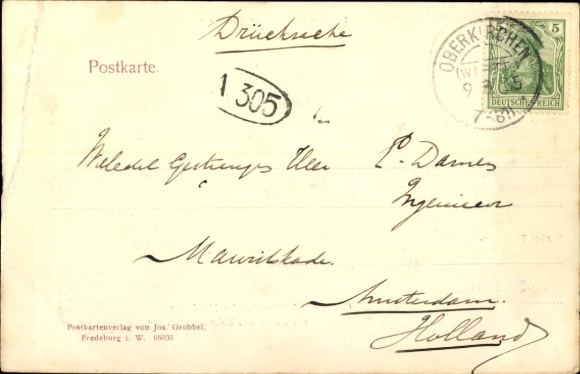 Drucksache
Postkarte.
OBERKIRCHEN
5
DEUTSCHES REICH
1 305
Weledel Gestrenge Heer P. Dames
Ingenieur
Mauritskade.
Amsterdam.
Holland
Postkartenverlag von Jos. Grobbel,
Fredeburg i. W. 08039